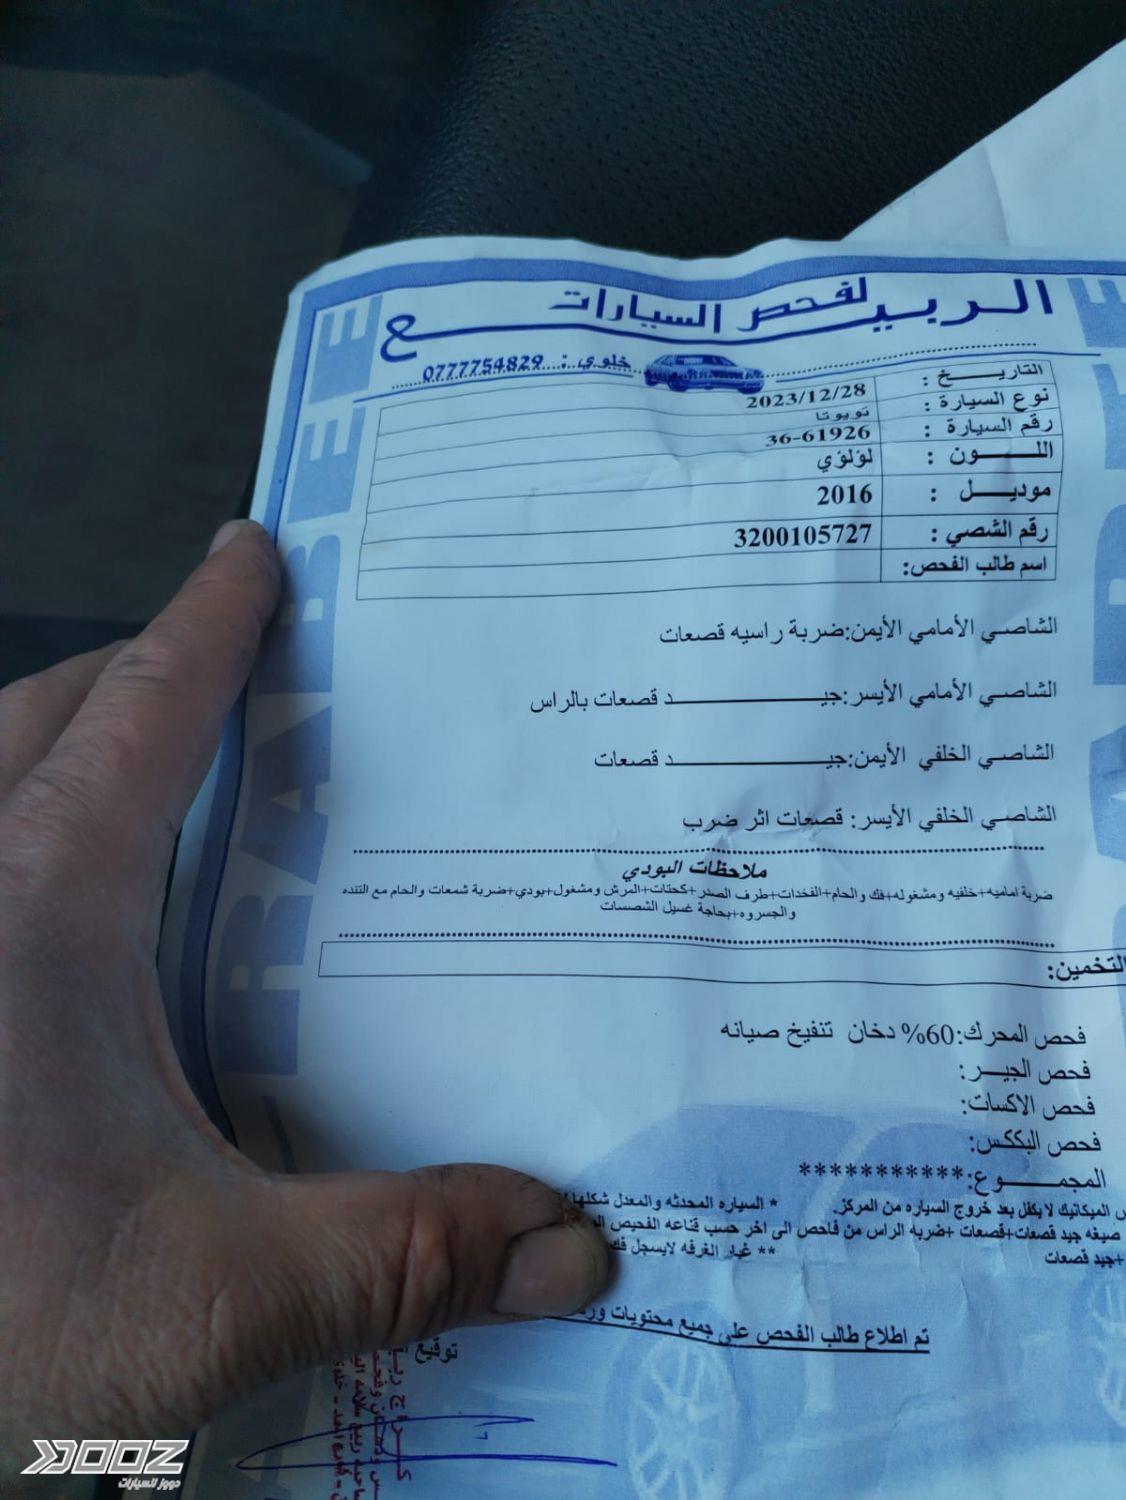 الربيع لفحص السيارات
خلوي : 0777754829
التاريخ : 2023/12/28
نوع السيارة : تويوتا
رقم السيارة : 36-61926
اللون : لؤلؤي
موديل : 2016
رقم الشصي : 3200105727
اسم طالب الفحص:
الشاصي الأمامي الأيمن:ضربة راسيه قصعات
الشاصي الأمامي الأيسر:جيد قصعات بالراس
الشاصي الخلفي الأيمن:جيد قصعات
الشاصي الخلفي الأيسر: قصعات اثر ضرب
ملاحظات البودي
ضربة اماميه+خلفيه ومشغوله+فك والحام+الفخدات+طرف الصدر+كحتات+المرش ومشغول+بودي+ضربة شمعات والحام مع التنده
والجسروه+بحاجة غسيل الشصسات
التخمين:
فحص المحرك:60% دخان تنفيخ صيانه
فحص الجير:
فحص الاكسات:
فحص البككس:
المجموع:***********
الميكانيك لا يكفل بعد خروج السياره من المركز. * السياره المحدثه والمعدل شكلها
صيغه جيد قصعات+قصعات +ضربه الراس من فاحص الى اخر حسب قناعه الفحيص
+جيد قصعات ** غبار الغرفه لايسجل فك
تم اطلاع طالب الفحص على جميع محتويات
توقيع
كراج
DOOZ
دووز للسيارات
ARABEE